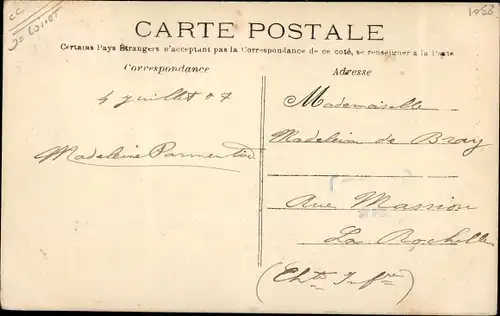 1050
CARTE POSTALE
Certains Pays Étrangers n'acceptant pas la Correspondance de ce coté, se renseigner à la Poste
Correspondance
Adresse
4 juillet 07
Madeleine Parmentier
Mademoiselle
Madeleine de Bray
Rue Massiou
La Rochelle
(Chte Infre)